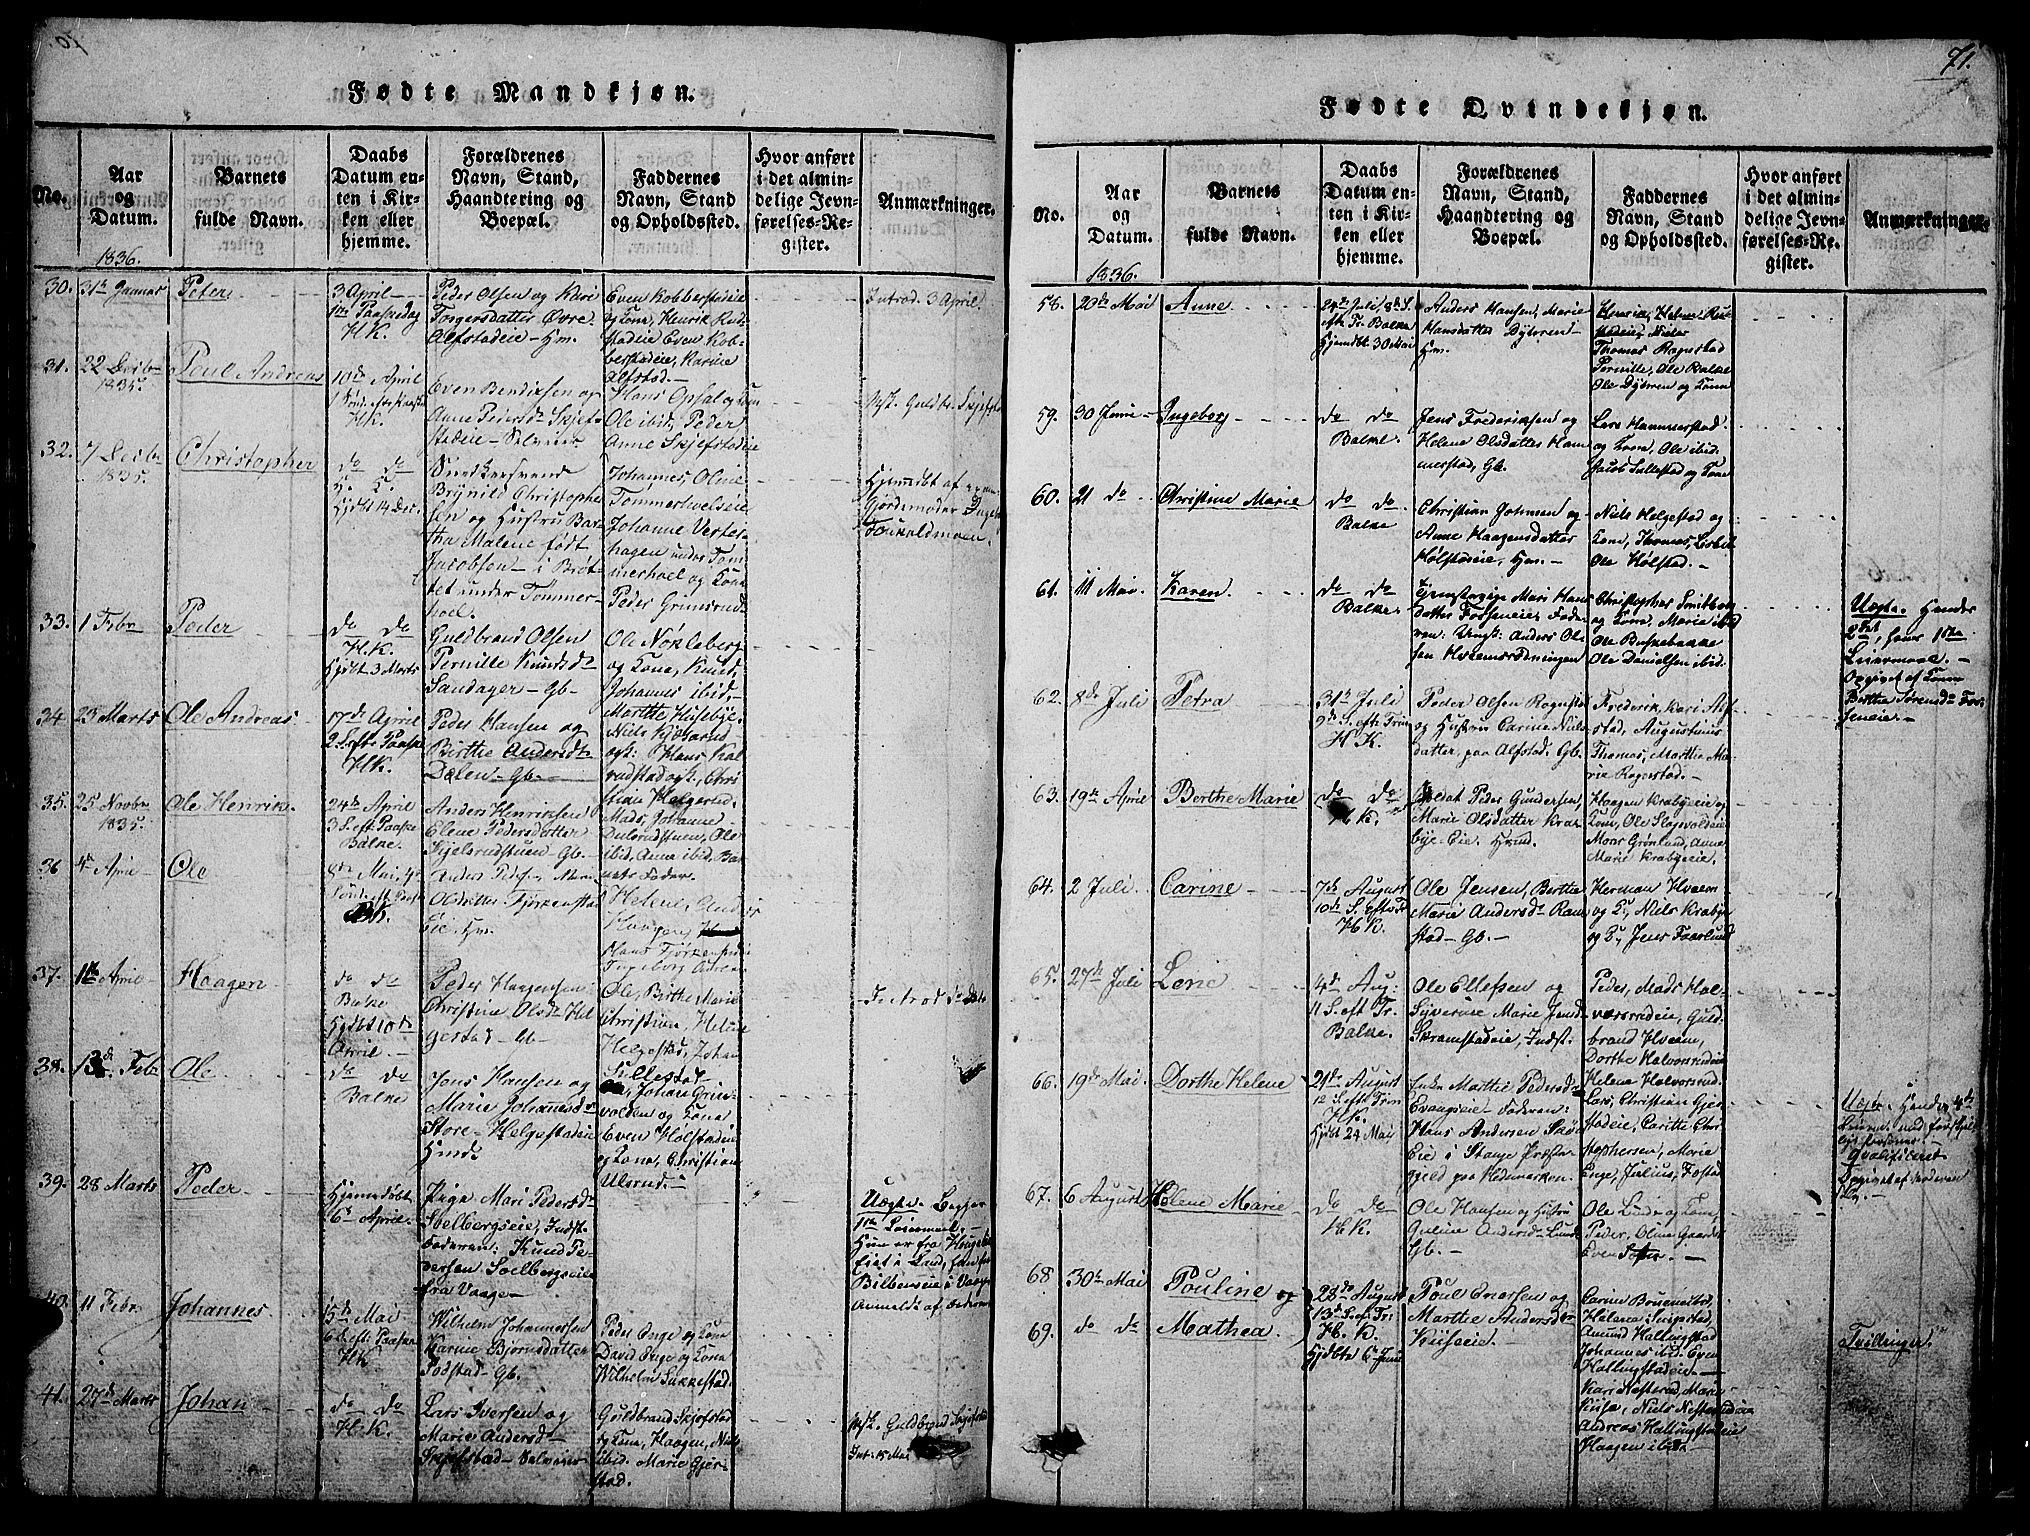 71.
Fødte Mandkjøn.
No.
Aar
og
Datum.
Barnets
fulde Navn.
Daabs
Datum en-
ten i Kir-
ken eller
hjemme.
Forældrenes
Navn, Stand,
Haandtering og
Boepæl.
Faddernes
Navn, Stand
og Opholdssted.
Hvor anført
i det almin-
delige Jevn-
førelses-Re-
gister.
Anmærkninger.
1836.
30.
31te Januar
Peter
3 April
1te Paaskedag
H.K.
Peder Olsen og Kari
Alfstadeie - Hm.
Even Kobberstadeie
og Kone, Henrik Rud-
stadeie Even Kob-
berstadeie, Karine
Alfstad.
Introd. 3 April.
31.
22 Decbr
1835.
Poul Andreas
10de April
1 Sønd. efter Paaske
H.K.
Even Bendixsen og
Anne Pedersdr Skjef-
stadeie - Selveier
Hans Opsal og Kone
Ole ibid, Peder
Anne Skjefstadeie
32.
7 Decbr
1835.
Christopher
do do
H. K.
Hjdbt 14 Dec.
Snedkersvend
Brynild Christophe-
sen og Hustru Bar-
tha Malene født
Jacobsen - i Brøt-
tet under Tommer-
hoel.
Johannes, Oline
Tommerhoelseie
Johanne Verter-
hagen under Tom-
merhoel og Kone
Peder Grimsrud
Hjemdbt af
Gjordemoder
33.
1 Febr
Peder
do do
H.K.
Hjdbt 3 Marts
Guldbrand Olsen
Pernille Knudsdr
Sandager - Gb.
Ole Nøkleberg
og Kone, Knud,
Johannes ibid,
Marthe Huseby.
34.
23 Marts
Ole Andreas
17de April
2 S. eft. Paaske
H.K.
Peder Hansen og
Birthe Andersdr
Dalen - Gb.
35.
25 Novbr
1835.
Ole Henrik
24de April
3 S. eft. Paaske
Balke.
Anders Henriksen
Elene Pedersdatter
Gjelsrudstuen - Gb.
Mads, Johanne
Dulsrudstuen, Ole
ibid, Anne ibid, Bar-
nets Fader.
36
4de April
Ole
8de Mai, 4de
Sønd. eft. Paaske
B.K.
Olsdatter Fjørkenstad
Eie. Hm.
Helene, Anders
Haagen
Hans Fjørkenstad
37.
1te April
Haagen
do do
Balke
Hjdbt 10de
April.
Peder Haagensen
Christine Olsdr Hel-
gestad - Gb.
Ole, Birthe Marie
Christian, Helene
Helgestad, Johan
Sullestad
38.
13de Febr
Ole
do do
Balke
Jens Hansen og
Marie Johannesdr
Store-Helgestadeie
Hmd.
Johan Grim-
volden og Kone
Even Hølstadeie
og Kone, Christian
Ulsrud.
39.
28 Marts
Peder
Hjemmedøbt
6te April.
Pige Mari Pedersdr
Soelbergseie, Indst
Faderen: Knud Pe-
dersen Soelbergseie
fra Vaage.
Uægte. Begge
1te Leiermaal.
Hun er fra Hougsb
eiet i Land, han fra
Bilbenseie i Vaage
Anmeldt af Faderen
40.
11 Febr.
Johannes
15de Mai
6 S. eft. Paaske
H.K.
Wilhelm Johannessen
Karine Bjørnsdatter
Podstad - Gb.
Peder Enge og Kone
David Enge og Kone
Wilhelm Sukkestad.
41.
27de Marts
Johan
do do
H.K.
Lars Iversen og
Marie Andersdr
Skjefstad - Selveier
Guldbrand Skjefstad
og Kone, Haagen, Niels
ibid. Marie Gjer-
stad.
Int. 15 Mai
Fødte Qvindekjøn.
No.
Aar
og
Datum.
Barnets
fulde Navn.
Daabs
Datum en-
ten i Kir-
ken eller
hjemme.
Forældrenes
Navn, Stand,
Haandtering og
Boepæl.
Faddernes
Navn, Stand
og Opholdssted.
Hvor anført
i det almin-
delige Jevn-
førelses-Re-
gister.
Anmærkninger.
1836.
58.
20de Mai
Anne
24de Juli 8de S.
eft. Tr. Balke
Hjemdbt 30 Mai
Anders Hansen, Marie
Hansdatter Dysteren
Hm.
Thomas Rognstad
Pernille, Ole Balke
Ole Dysteren og Kone
59.
30 Juni
Ingeborg
do do
Balke.
Jens Frederiksen og
Helene Olsdatter Ham-
merstad, Gb.
Lars Hammerstad
og Kone, Ole ibid.
Jacob Sullestad og Kone
60.
21 do
Christine Marie
do do
Balke
Christian Johnsen og
Anne Haagensdatter
Hølstadeie, Hm.
Niels Helgestad og
Kone, Thomas, Lisbet
Ole Hølstad.
61.
11 Mai
Karen
do do
Balke.
Tjenestepige Mari Han-
datter Fosseneie, Fade-
ren: Ungk. Anders Ol-
sen Hveemsrødningen
Christopher Smitborg
og Kone, Marie ibid
Ole Buskebakke
Ole Danielsen ibid.
Uægte. Hendes
2det, hans 1te
Leiermaal.
Opgivet af Kone
62.
8de Juli
Petra
31te Juli
9de S. eft. Trin
H.K.
Peder Olsen Rognstad
og Hustru Carine Niels-
datter, paa Alfstad. Gb.
Frederik, Kari Alf-
stad, Augustinus
Thomas, Marthe Ma-
rie Rogestad.
63.
19de April
Berthe Marie
do do
H.K.
Soldat Peder Gundersen,
Marie Olsdatter Kra-
bye-Eie. Hmd.
Haagen Krabyeie og
Kone, Ole Slagvoldseie
Mons Grønlund, Anne
Marie Krabyeie.
64.
2 Juli
Carine
7de August
10de S. eft. Tr
H.K.
Ole Jensen, Berthe
Marie Andersdr Ram-
stad - Gb.
Herman Hveem
og K., Niels Krabye
og K., Jens Faarlund
65.
27de Juli
Lene
4de Aug:
11 S. eft. Tr.
Balke.
Ole Ellefsen og
Syverine Marie Jensdr
Skramstadeie, Indst.
Peder, Mads Hal-
vorsrudeie, Guld-
brand Hveem,
Dorthe Halvorsrudeie
66.
19de Mai
Dorthe Helene
21de August
12 S. eft. Trin
H.K.
Hjdbt 24 Mai
Enke Marthe Pedersdr
Evangseie - Faderen:
Hans Andersen
Eie i Stange Præste-
gjeld paa Hedemarken.
Helene Halvorsrud.
Lars, Christian Gjer-
stadeie, Caritte Chri-
stophersen, Marie
Enge, Julius, Fostad
Uægte. Hendes 4de
Leierm. med forskjel-
lige Personer.
Qvalificeret
Opgivet af Faderen
67.
6 August
Helene Marie
do do
H.K.
Ole Hansen og Hustru
Juline Andersdr Lund
Gb.
Ole Lund og Kone,
Peder, Oline Gaarder
Even
68
30te Mai
Pouline og
28de August
13de S. ef. Tri.
H.K.
Hjdbte 6te Juni
Poul Enersen og
Marthe Andersdr
Kiseeie.
Carine Bruemstad,
Helene
Amund Hallingstad,
Johannes ibid. Even
Hallingstadeie.
69.
do do
Mathea
Kari Nesterud, Marie
Kise, Niels Nesterudeie
Andreas Hallingstadeie
Haagen ibid.
Tvillinger.